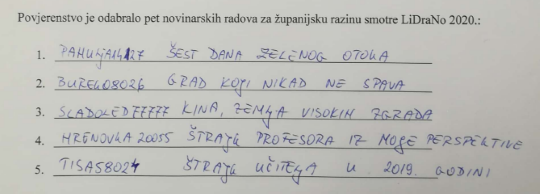 Povjerenstvo je odabralo pet novinarskih radova za županijsku razinu smotre LiDraNo 2020.:
1. ŠEST DANA ZELENOG OTOKA
2. BUREK08026 GRAD KOJI NIKAD NE SPAVA
3. SLADOLED77777 KINA, ZEMLJA VISOKIH ZGRADA
4. HRENOVKA 20055 ŠTRAJK PROFESORA IZ MOJE PERSPEKTIVE
5. TISA58024 ŠTRAJK UČITELJA U 2019. GODINI